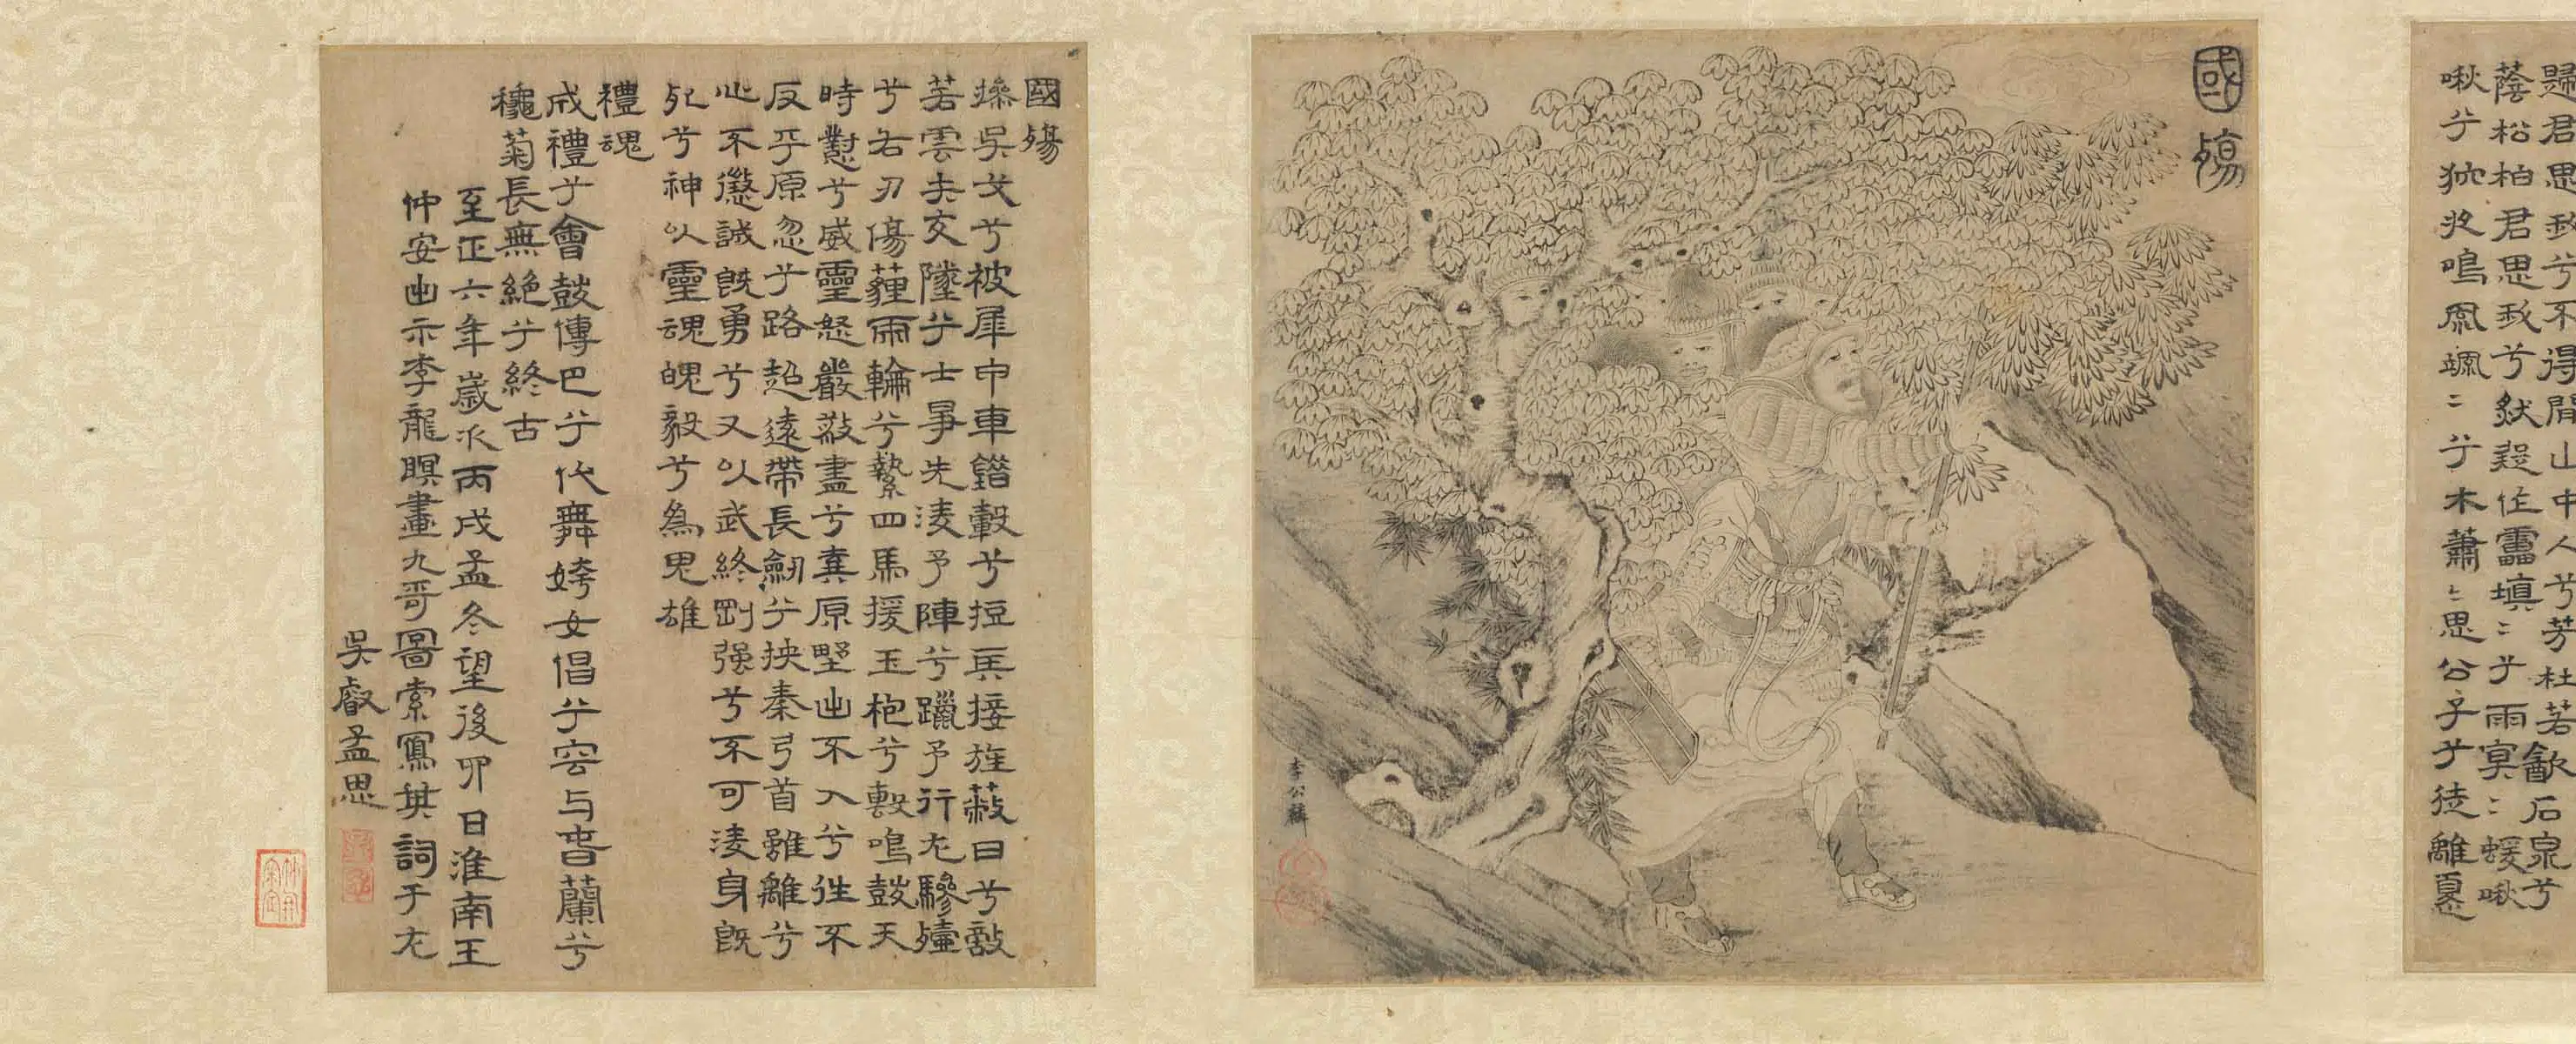 歸君思我兮不得閒山中人兮芳杜若歙石泉兮
蔭松柏君思我兮然疑作靁填〻兮雨冥〻蝯啾
啾兮狖夜鳴風颯〻兮木蕭〻思公子兮徒離憂
國殤
李公麟
國殤
操吳戈兮被犀甲車錯轂兮短兵接旌蔽日兮敵
若雲矢交墜兮士爭先淩予陣兮躐予行左驂殪
兮右刃傷薶兩輪兮縶四馬援玉枹兮擊鳴鼓天
時懟兮威靈怒嚴殺盡兮棄原野出不入兮往不
反平原忽兮路超遠帶長劒兮挾秦弓首雖離兮
心不懲誠既勇兮又以武終剛强兮不可淩身既
死兮神以靈魂魄毅兮爲鬼雄
禮魂
成禮兮會鼓傳巴兮代舞姱女倡兮容与春蘭兮
穐菊長無絶兮終古
至正六年歲次丙戌孟冬望後卯日淮南王
仲安出示李龍瞑畫九哥圖索寫其詞于左
吳叡孟思